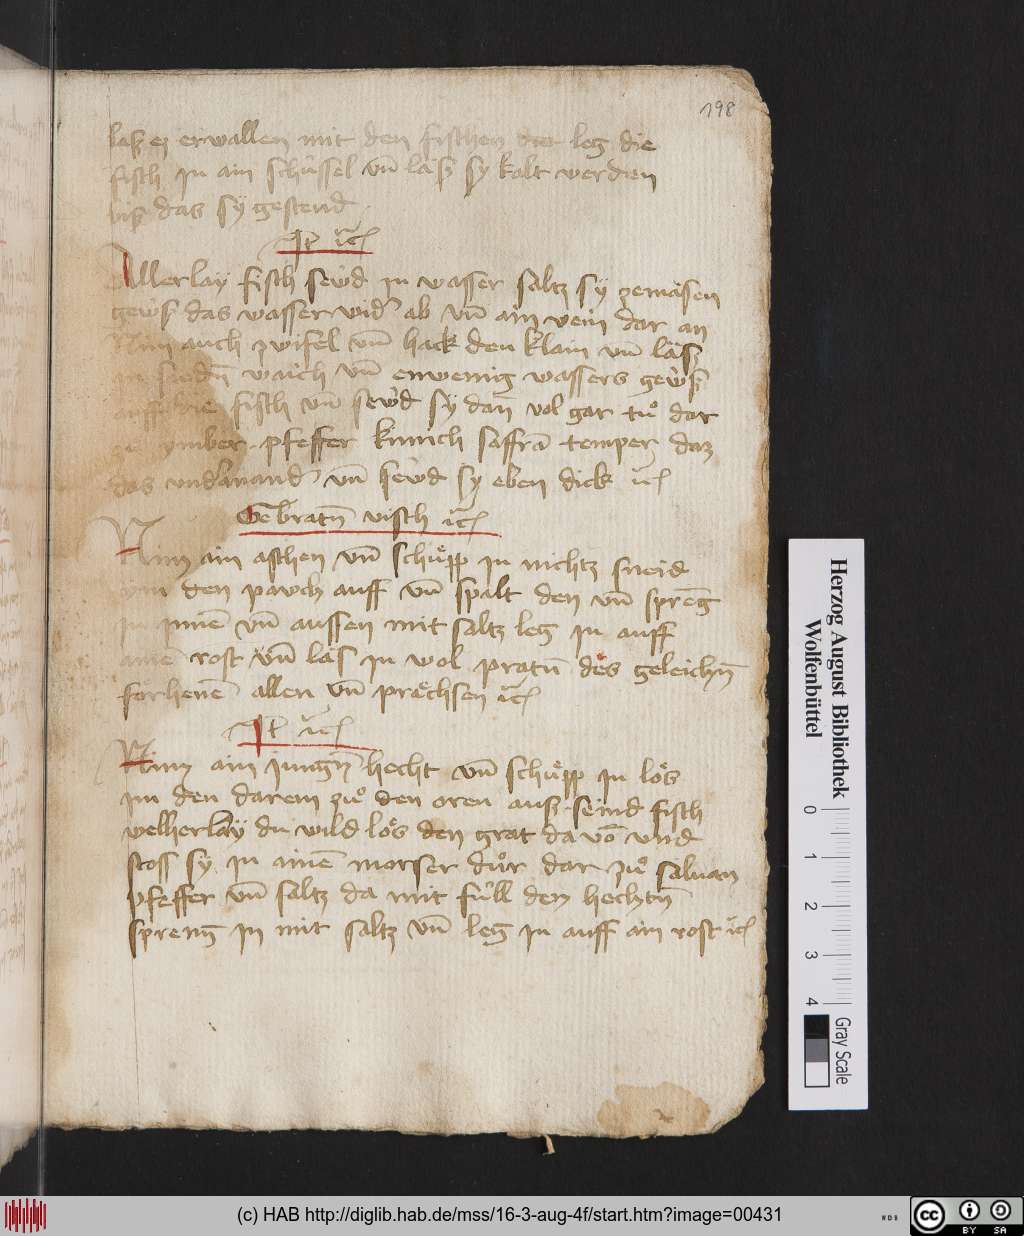 198
lasz ez erwallen mit den fischen leg die
fisch in ain schüssel vn̄ läsz sy kalt werden
bisz das sy gestend
It ic̄
Allerlay fisch sewd in wasser saltz sy gemäsen
gewsz das wasser wid' ab vn̄ ain wein dar an
Nim auch zwifel vn̄ hack den klain vn̄ läsz
in siedn̄ waich vn̄ enwenig wassers gewsz
die fisch vn̄ sewd sy dan̄ vol gar tuͦ dar
ymber pfeffer kimich saffrā temper daz
das vnd'anand' vn̄ sewd sy eben dick ic̄
Gebratn̄ visch ic̄
Nim ain aschen vn̄ schüpp in nichtz sneid
den pavch auff vn̄ spalt den vn̄ spreng
innē vn̄ aussen mit saltz leg in auff
rost vn̄ läs in wol pratn̄ des geleichn̄
forhenē allen vn̄ prächsen ic̄
It ic̄
Nim ain iungn̄ hecht vn̄ schüpp in lös
im den darem zuͦ den oren ausz seind fisch
welherlay du wild lös den grat da vō vnd
stoss sy in ainē morser düͦr dar zuͦ saluan
pfeffer vn̄ saltz da mit füll den hechtn̄
spreng in mit saltz vn̄ leg in auff ain rost ic̄
Herzog August Bibliothek
Wolfenbüttel
0 1 2 3 4
Gray Scale
(c) HAB http://diglib.hab.de/mss/16-3-aug-4f/start.htm?image=00431
WDB
cc
BY SA